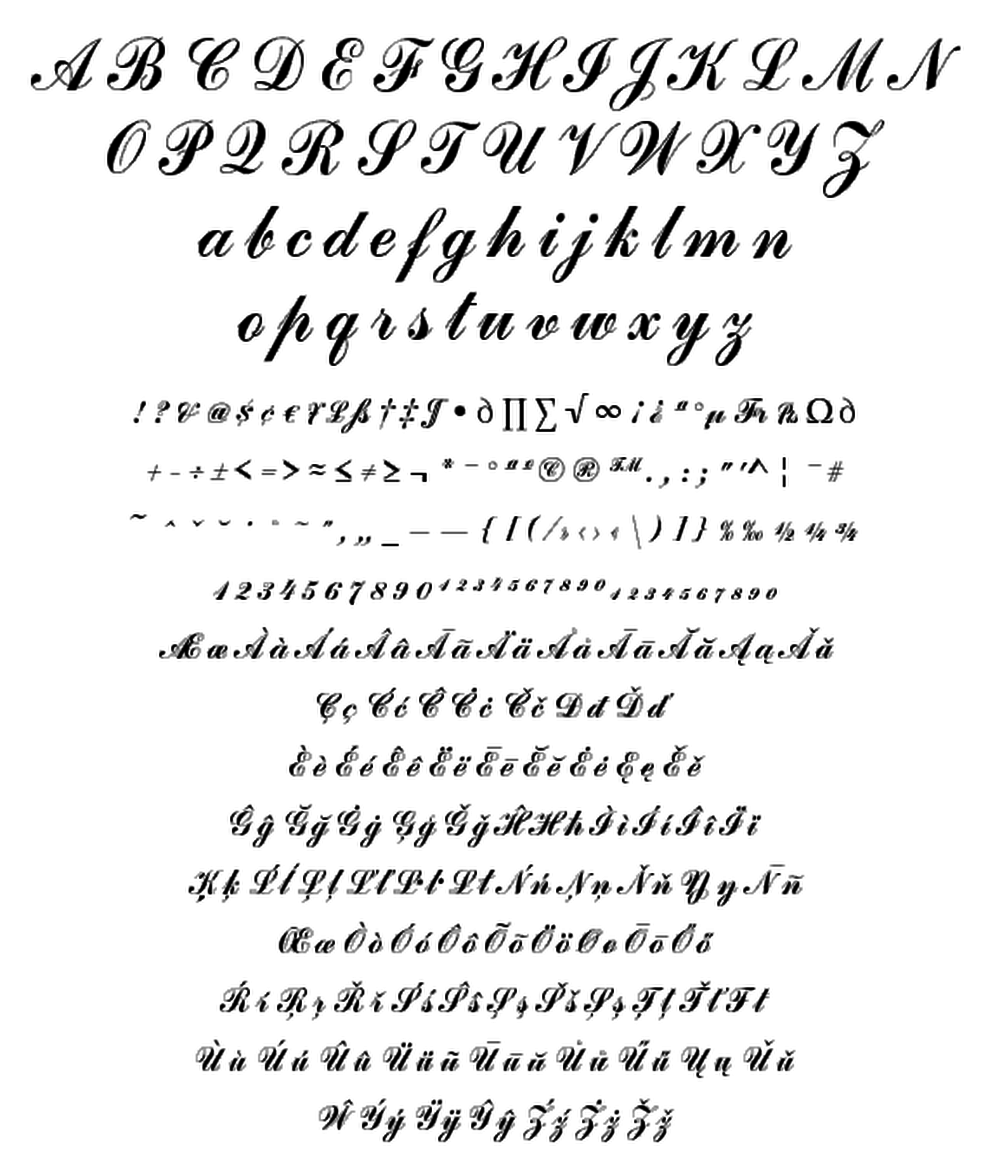 A B C D E F G H I J K L M N
O P Q R S T U V W X Y Z
a b c d e f g h i j k l m n
o p q r s t u v w x y z
! ? & @ $ ¢ € ¥ £ ß † ‡ • ∂ ∏ ∑ √ ∞ ¡ ¿ ª º µ Ω ∂
+ - ÷ ± < = > ≈ ≤ ≠ ≥ ¬ * ¯ ° ª º © ® ™ . , : ; " ' ^ ¦ ¯ #
˜ ˆ ˇ ˘ ˙ ˚ ˜ ˝ , „ _ – — { [ ( / › ‹ › ‹ \ ) ] } % ‰ ½ ¼ ¾
1 2 3 4 5 6 7 8 9 0 1 2 3 4 5 6 7 8 9 0 1 2 3 4 5 6 7 8 9 0
Æ æ À à Á á Â â Ã ã Ä ä Å å Ā ā Ă ă Ą ą Ǎ ǎ
Ç ç Ć ć Ĉ Ċ ċ Č č Đ đ Ď ď
È è É é Ê ê Ë ë Ē ē Ĕ ĕ Ė ė Ę ę Ě ě
Ĝ ĝ Ğ ğ Ġ ġ Ģ ģ Ǧ ǧ Ĥ Ħ ħ Ì ì Í í Î î Ï ï
Ķ ķ Ĺ ĺ Ļ ļ Ľ ľ Ŀ ŀ Ł ł Ń ń Ņ ņ Ň ň Ŋ ŋ Ñ ñ
Œ œ Ò ò Ó ó Ô ô Õ õ Ö ö Ø ø Ō ō Ő ő
Ŕ ŕ Ŗ ŗ Ř ř Ś ś Ŝ ŝ Ş ş Š š Ș ș Ţ ţ Ť ť Ŧ ŧ
Ù ù Ú ú Û û Ü ü ũ Ū ū ŭ Ů ů Ű ű Ų ų Ǔ ǔ
Ŵ Ý ý Ÿ ÿ Ŷ ŷ Ź ź Ż ż Ž ž